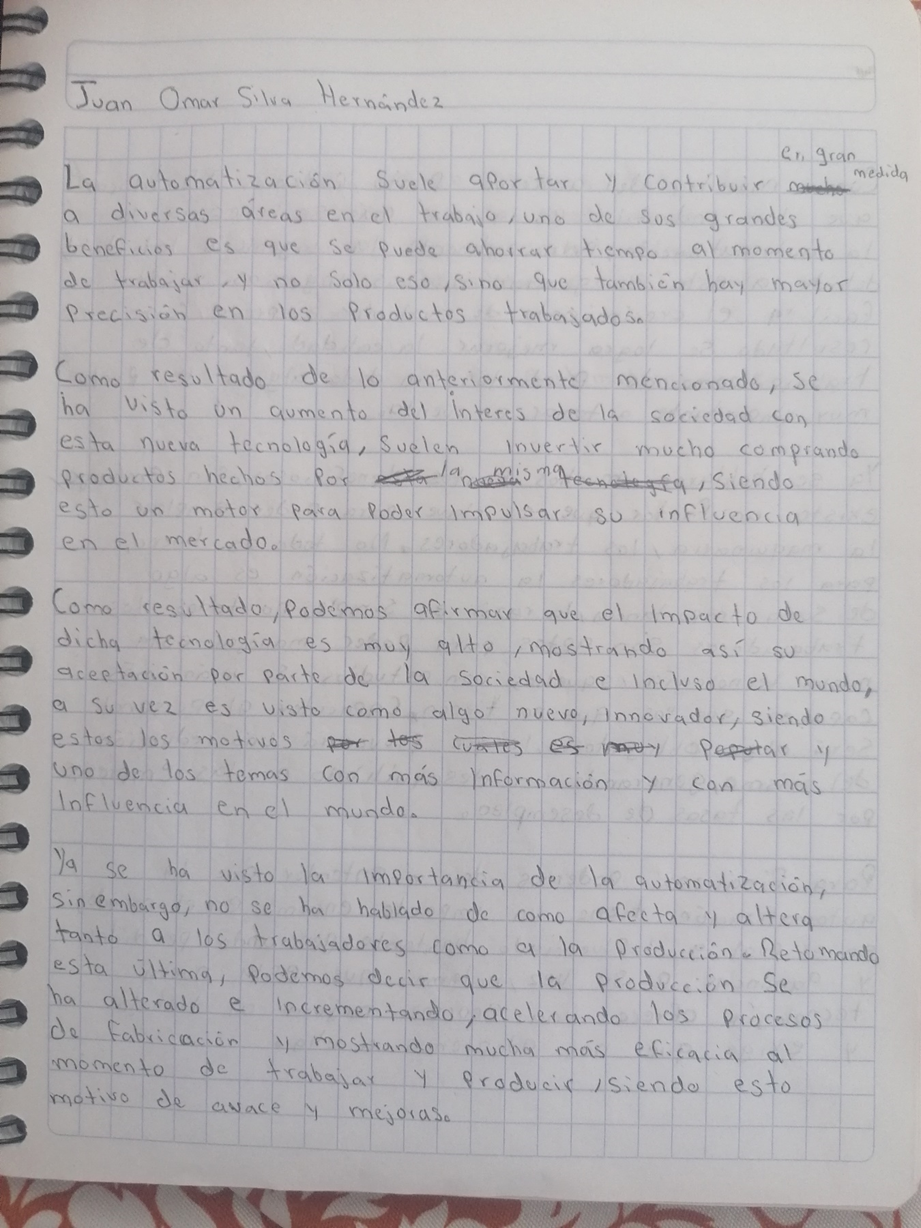 Juan Omar Silva Hernández
en gran
La automatización suele aportar y contribuir mucho medida
a diversas áreas en el trabajo, uno de sus grandes
beneficios es que se puede ahorrar tiempo al momento
de trabajar, y no solo eso, sino que también hay mayor
precisión en los productos trabajados.
Como resultado de lo anteriormente mencionado, se
ha visto un aumento del interes de la sociedad con
esta nueva tecnología, suelen invertir mucho comprando
productos hechos por esta la misma tecnología, siendo
esto un motor para poder impulsar su influencia
en el mercado.
Como resultado, podemos afirmar que el impacto de
dicha tecnología es muy alto, mostrando así su
aceptación por parte de la sociedad e incluso el mundo,
a su vez es visto como algo nuevo, innovador, siendo
estos los motivos por los cuales es muy y
uno de los temas con más información y con más
influencia en el mundo.
Ya se ha visto la importancia de la automatización,
sin embargo, no se ha hablado de como afecta y altera
tanto a los trabajadores como a la producción. Retomando
esta última, podemos decir que la producción se
ha alterado e incrementando, acelerando los procesos
de fabricación y mostrando mucha más eficacia al
momento de trabajar y producir, siendo esto
motivo de avace y mejoras.